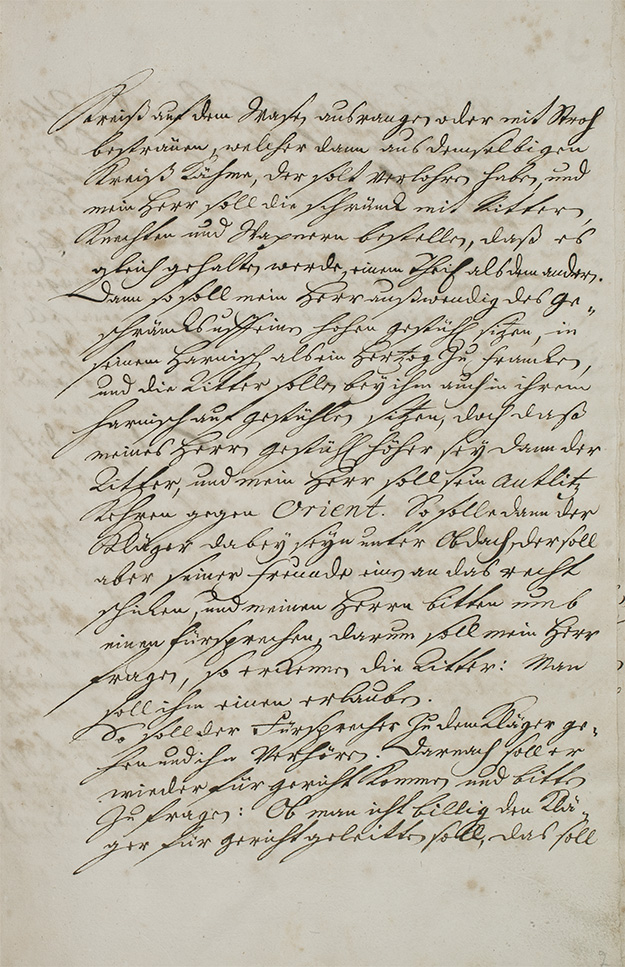 Kreiß auf dem Wasen ausrangen oder mit Stroh
bestraüen, welcher dann aus demselbigen
Kreiß Kähme, der solt verlohren haben, und
mein Herr soll die schränck mit Rittern,
Knechten und Wapnern bestellen, daß es
gleich gehalten werde, einem Theil als dem andern.
Dann so soll mein Herr außwendig des Ge„
schräncks uff einen hohen gestühl sitzen, in
seinem Harnisch als ein Hertzog zu francken,
und die Ritter sollen bey ihm auch in ihrem
harnisch auf gestühlen sitzen, doch dass
meines Herrn gestühl höher sey dann der
Ritter, und mein Herr soll sein Antlitz
Kehren gegen Orient. So solle dann der
Kläger dabey seyn unter Obdach, der soll
aber seiner freunde einen an das recht
schicken, und meinen Herrn bitten umb
einen fürsprechen, darum soll mein Herr
fragen, so erkennen die Ritter: Man
soll ihm einen erlauben.
So soll der Fürsprecher zu dem Kläger ge„
hen und ihn Verhören. Darnach soll er
wieder für gericht Kommen und bitten
zu fragen: Ob man icht billig den Klä„
ger für gericht geleitten soll, das soll
2